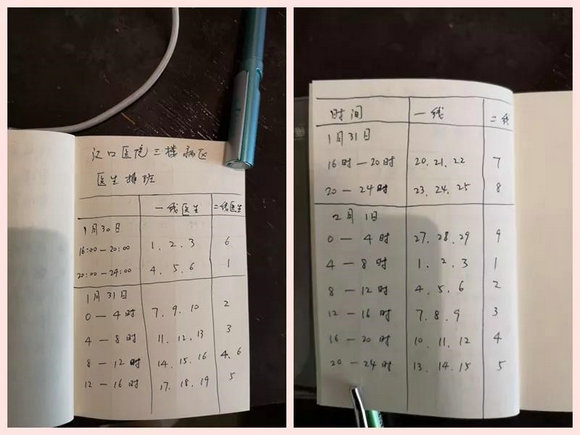 汉口医院三楼病区
医生排班
一线医生 二线医生
1月30日
16:00—20:00 1、2、3 6
20:00—24:00 4、5、6 1
1月31日
0—4时 7、9、10 2
4—8时 11、12、13 3
8—12时 14、15、16 4、6
12—16时 17、18、19 5
时间 一线 二线
1月31日
16时—20时 20、21、22 7
20—24时 23、24、25 8
2月1日
0—4时 27、28、29 9
4—8时 1、2、3 1
8—12时 4、5、6 2
12—16时 7、8、9 3
16—20时 10、11、12 4
20—24时 13、14、15 5